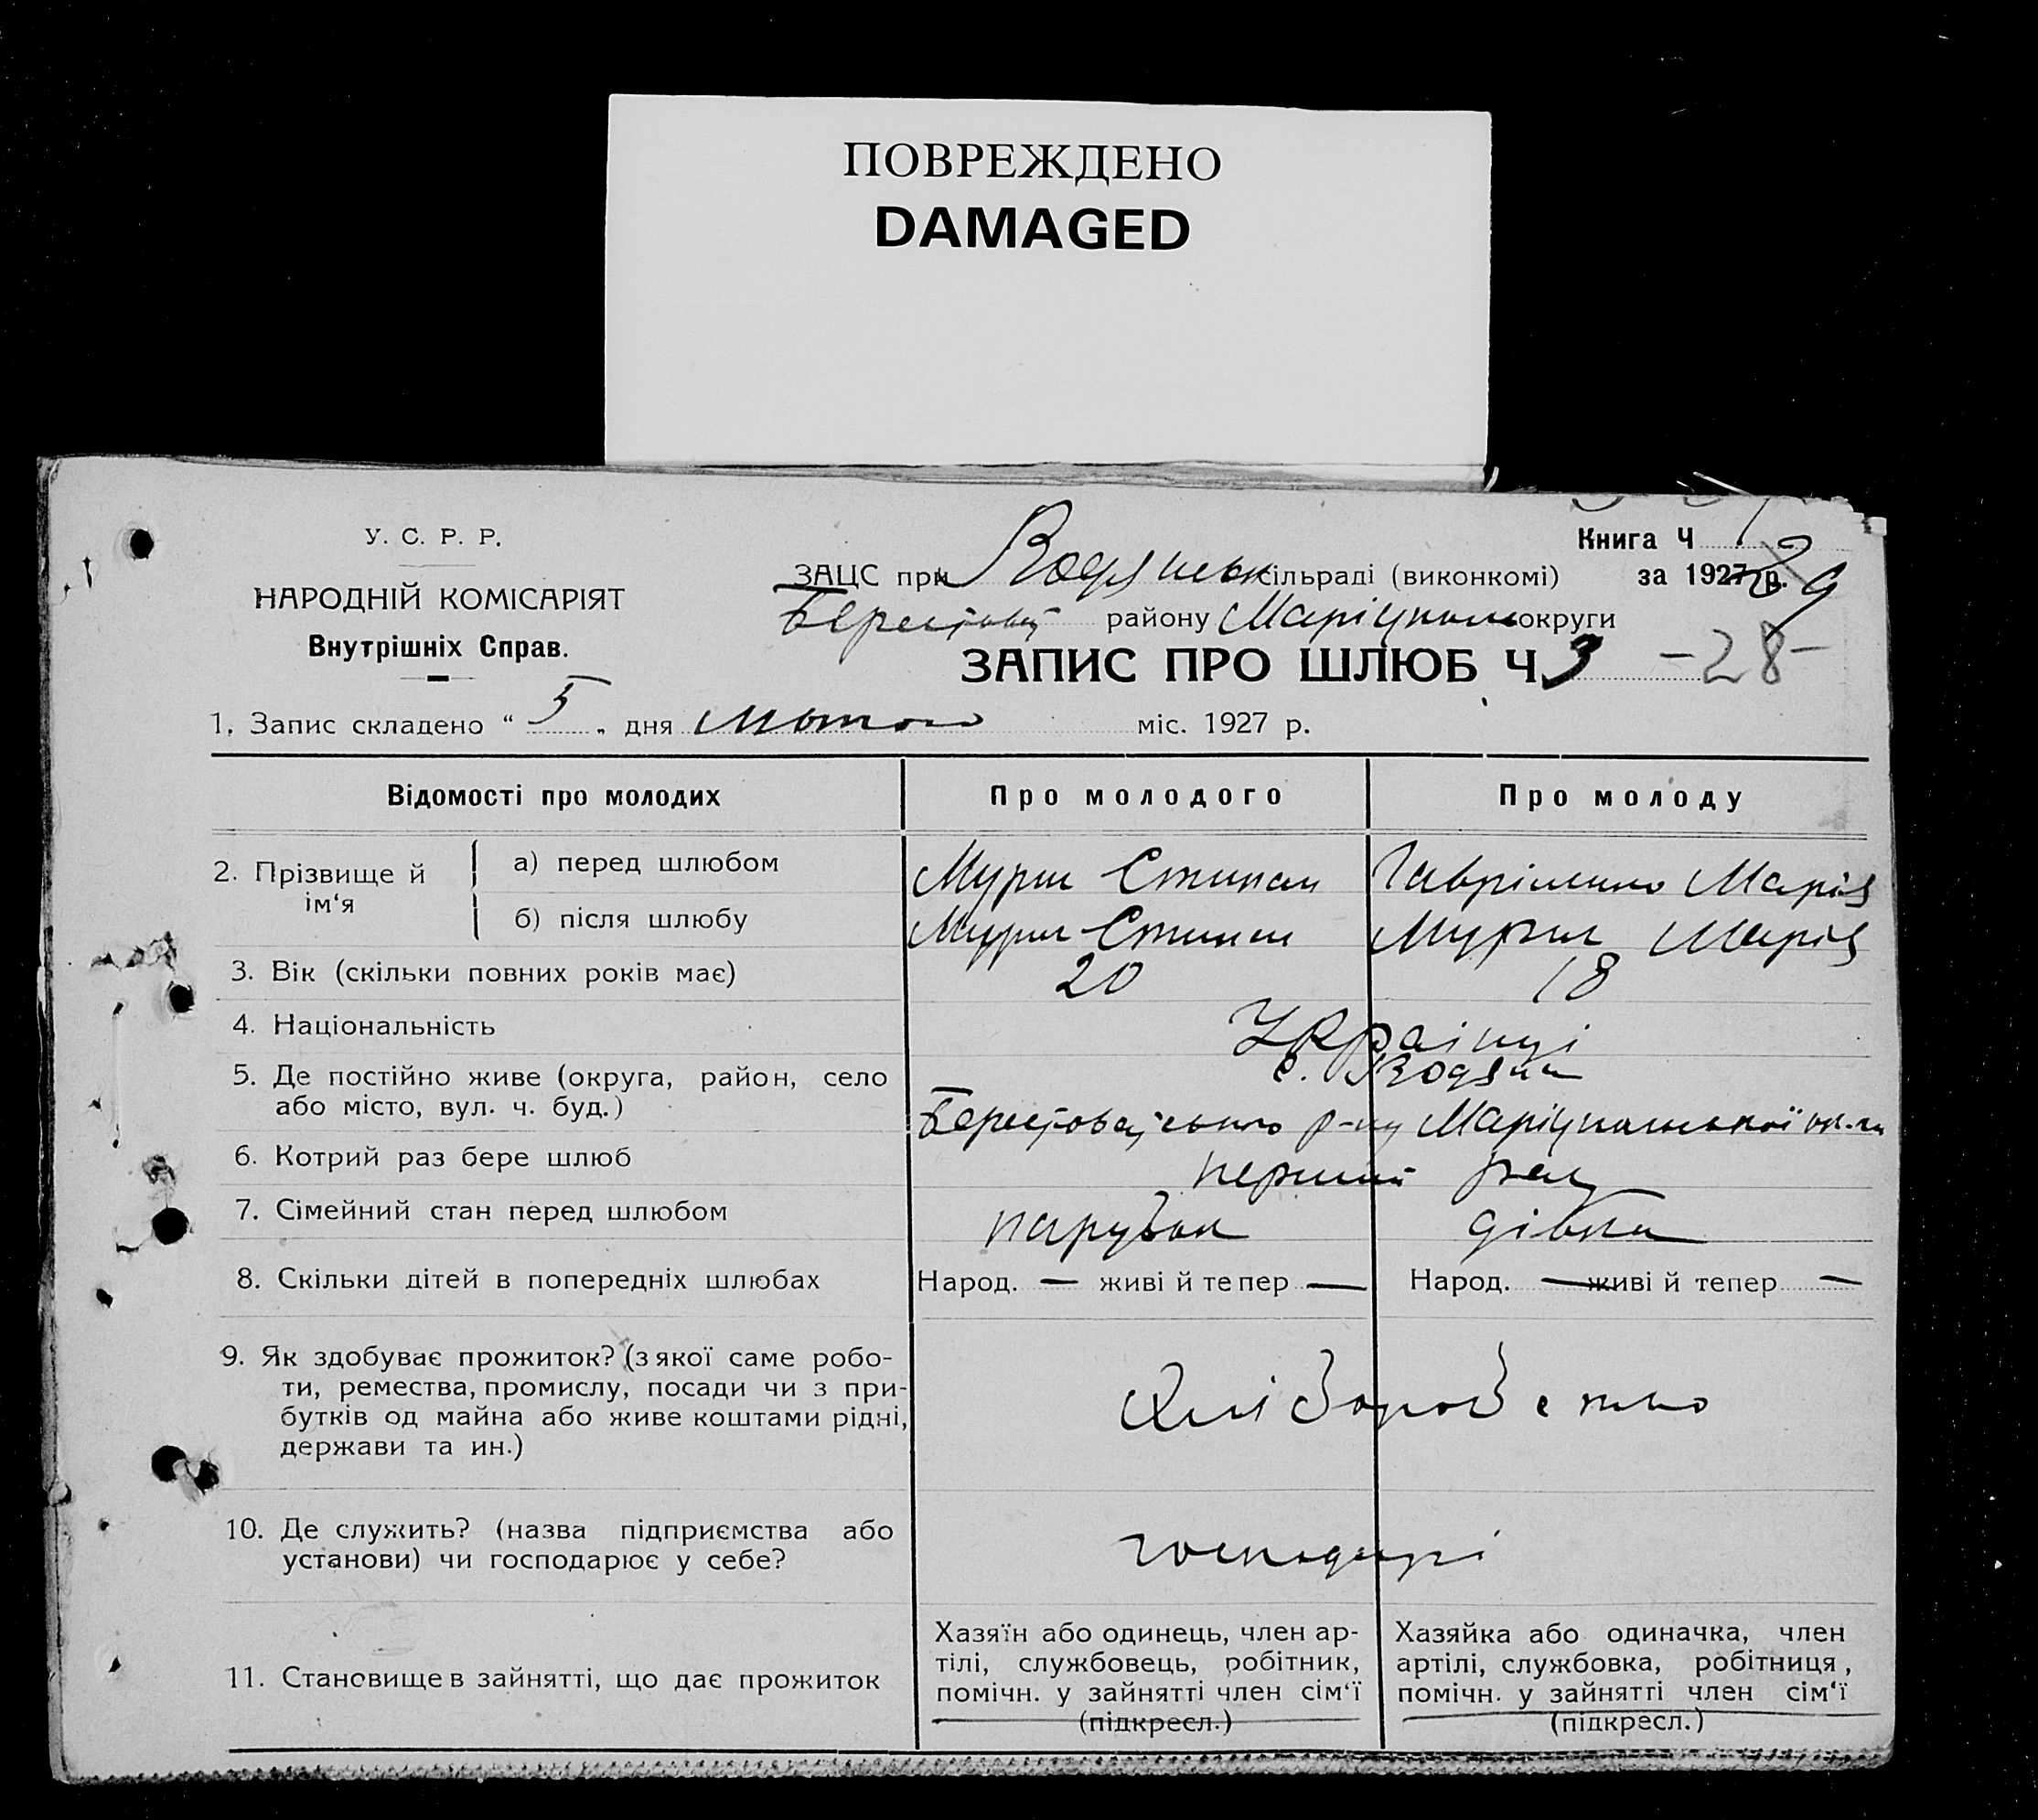 ПОВРЕЖДЕНО
DAMAGED
У. С. Р. Р.
НАРОДНІЙ КОМІСАРІЯТ
Внутрішніх Справ.
Книга Ч
ЗАЦС при Водянськ сільраді (виконкомі) за 1927 р. 29
району Маріупольс округи
ЗАПИС ПРО ШЛЮБ Ч 3 -28-
1. Запис складено “ 5 „ дня лютого міс. 1927 р.
Відомості про молодих Про молодого Про молоду
2. Прізвище й ім‘я
а) перед шлюбом Степан Марія
б) після шлюбу Степан Марія
3. Вік (скільки повних років має) 20 18
4. Національність Українці
5. Де постійно живе (округа, район, село с. Водяне
або місто, вул. ч. буд.) р-ну Маріупольської
6. Котрий раз бере шлюб перший раз
7. Сімейний стан перед шлюбом парубок дівка
8. Скільки дітей в попередніх шлюбах Народ. — живі й тепер — Народ. — живі й тепер —
9. Як здобуває прожиток? (з якої саме робо-
ти, ремества, промислу, посади чи з при-
бутків од майна або живе коштами рідні,
держави та ин.)
хліборобство
10. Де служить? (назва підприємства або
установи) чи господарює у себе?
господарі
11. Становище в зайнятті, що дає прожиток
Хазяїн або одинець, член ар-
тілі, службовець, робітник,
помічн. у зайнятті член сім‘ї
(підкресл.)
Хазяйка або одиначка, член
артілі, службовка, робітниця,
помічн. у зайнятті член сім‘ї
(підкресл.)